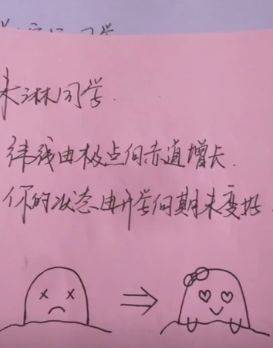 同学
纬线由极点向赤道增长
你的状态由开学向期末变好